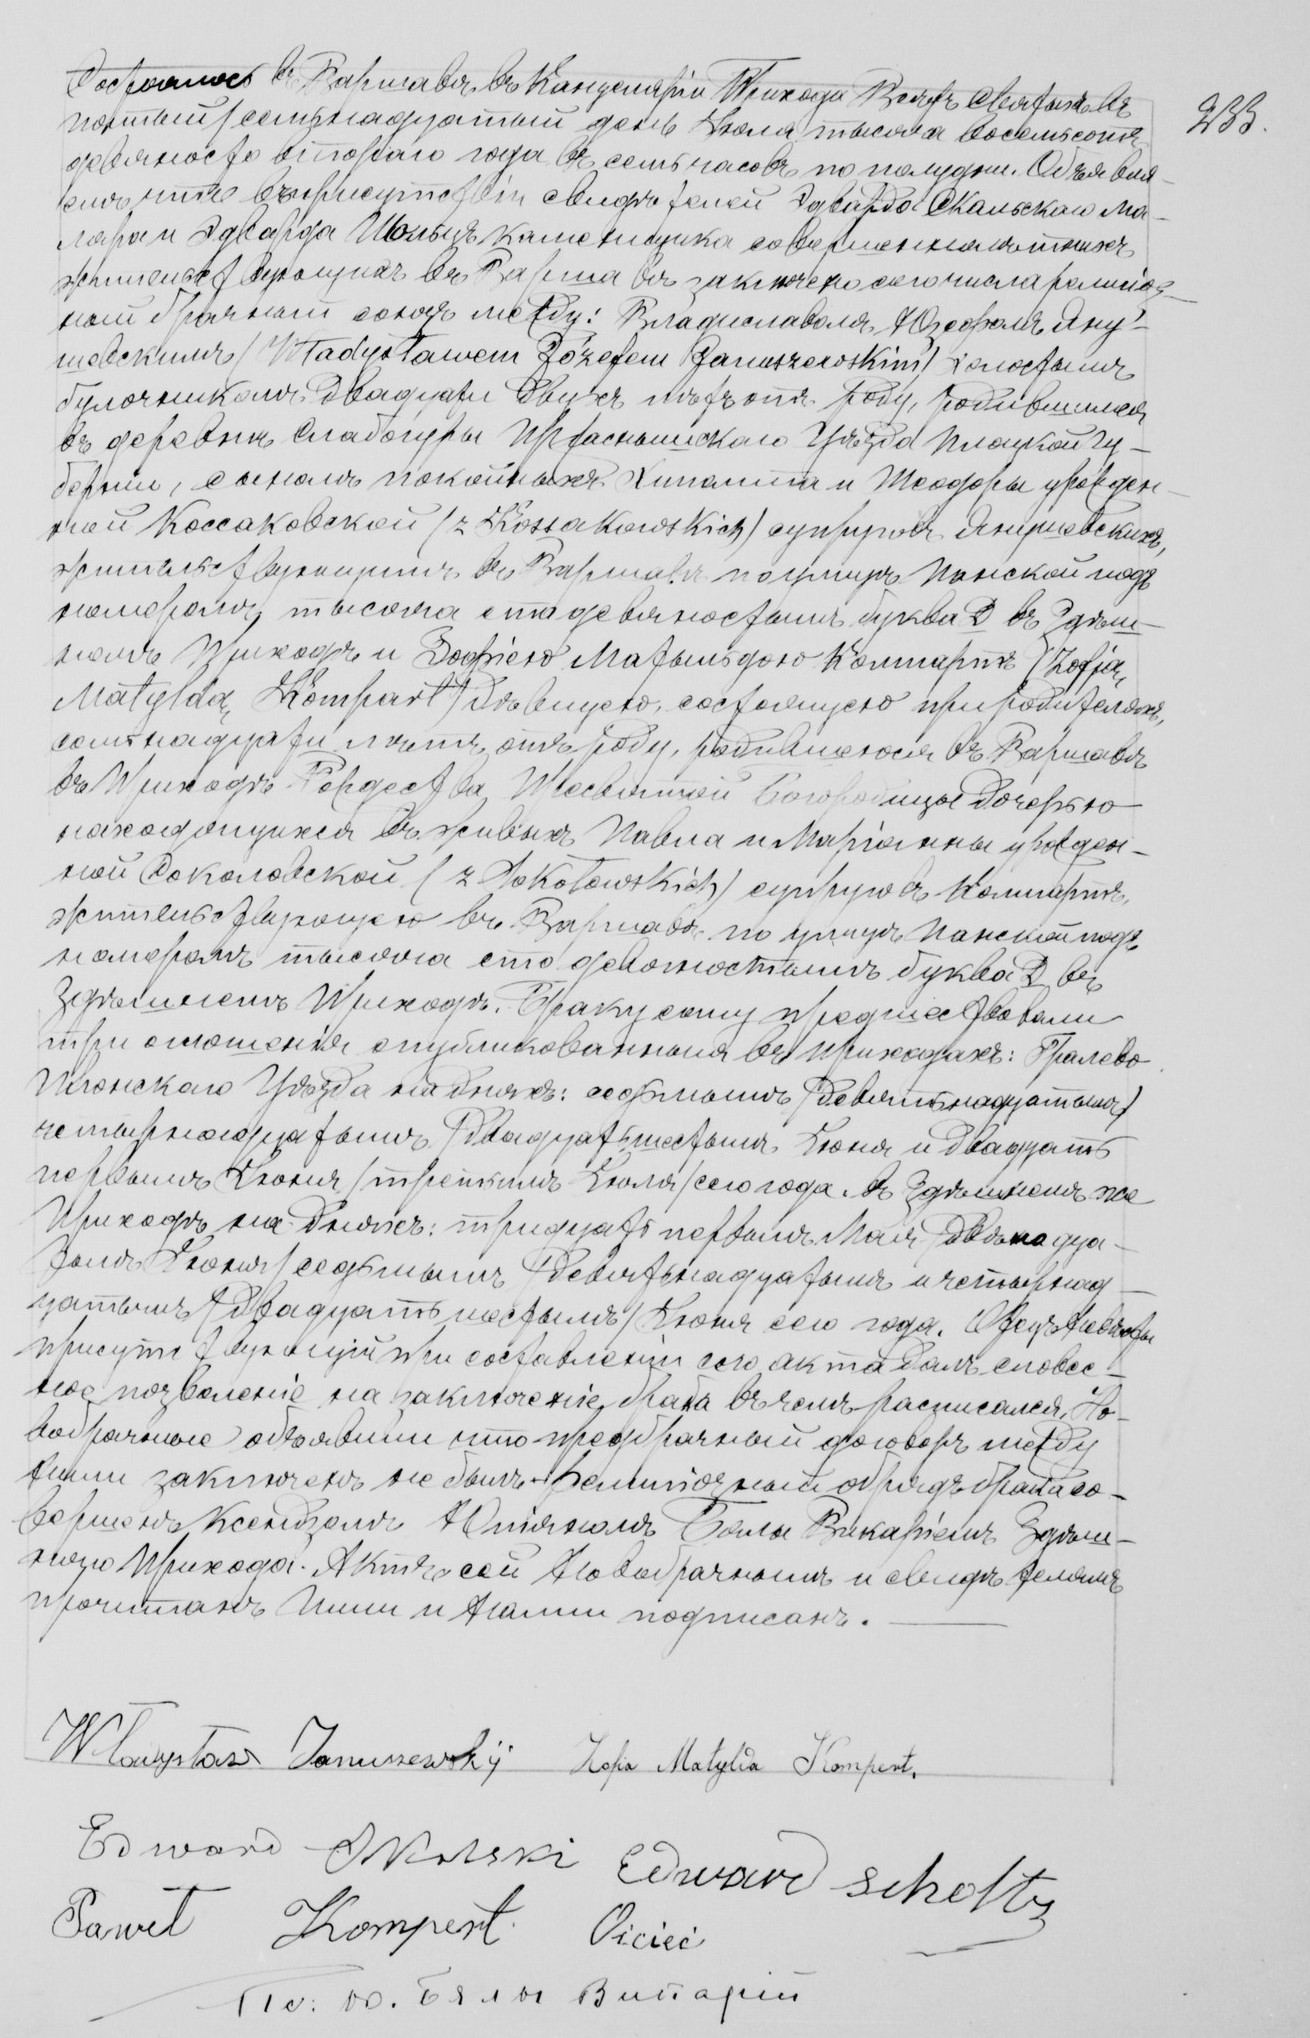 Состоялось въ Варшавѣ въ Канцеляріи Прихода Всѣхъ Святыхъ въ
пятый /семьнадцатый день Іюля тысяча восемьсотъ
девяносто втораго года въ семь часовъ по полудни. Объявля-
емъ что въ присутствіи свидѣтелей Эдварда Скальскаго Ма-
ляра и Эдварда Шольцъ каменщика совершеннолѣтнихъ
жительствующихъ въ Варшавѣ заключенъ сего числа религіоз-
ный брачный союзъ между: Владиславомъ Юзефомъ Яну-
шевскимъ /Władysławem Józefem Januszewskim/ холостымъ
булочникомъ двадцати двухъ лѣтъ отъ роду, родившимся
въ деревнѣ Слабогуры Праснышскаго Уѣзда Плоцкой Гу-
берніи, сыномъ покойныхъ Ипполита и Теодоры урожден-
ной Коссаковской (z Kossakowskich) супруговъ Янушевскихъ,
жительствующимъ въ Варшавѣ по улицѣ Панской подъ
номеромъ тысяча сто девяностымъ буква D въ здѣш-
немъ Приходѣ и Зофіею Матыльдою Компартъ (Zofją
Matyldą Kompart) дѣвицею, состоящею при родителяхъ,
семнадцати лѣтъ отъ роду, родившеюся въ Варшавѣ
въ Приходѣ Рождества Пресвятой Богородицы дочерью
находящихся въ живыхъ Павла и Маріанны урожден-
ной Соколовской (z Sokołowskich) супруговъ Компартъ,
жительствующею въ Варшавѣ по улицѣ Панской подъ
номеромъ тысяча сто девяностымъ буква D въ
здѣшнемъ Приходѣ. Браку сему предшествовали
три оглашенія опубликованныя въ приходахъ: Гралево
Плонскаго Уѣзда на дняхъ: седьмымъ /девятьнадцатымъ/
четырнадцатымъ /двадцать шестымъ Іюня и двадцать
первымъ Іюня /третьимъ Іюля/ сего года. въ здѣшнемъ же
Приходѣ на дняхъ: тридцать первымъ Мая /двѣнадца-
тымъ Іюня /седьмымъ /девятьнадцатымъ и четырнад-
цатымъ /двадцать шестымъ/ Іюня сего года. Отецъ Невѣсты
присутствующій при составленіи сего акта далъ словес-
ное позволеніе на заключеніе брака въ чемъ расписался. Но-
вобрачные объявили что предбрачный договоръ между
ними заключенъ не былъ. Религіозный обрядъ брака со-
вершенъ Ксендзомъ Юліаномъ Бялы Викаріемъ здѣш-
няго Прихода. Актъ сей Новобрачнымъ и свидѣтелямъ
прочитанъ Ими и Нами подписанъ.
233.
Władysław Januszewskij Zofja Matylda Kompert.
Edward Skolski Edward Scholtz
Paweł Kompert. Oiciec
Кс: Ю. Бялы Викарій